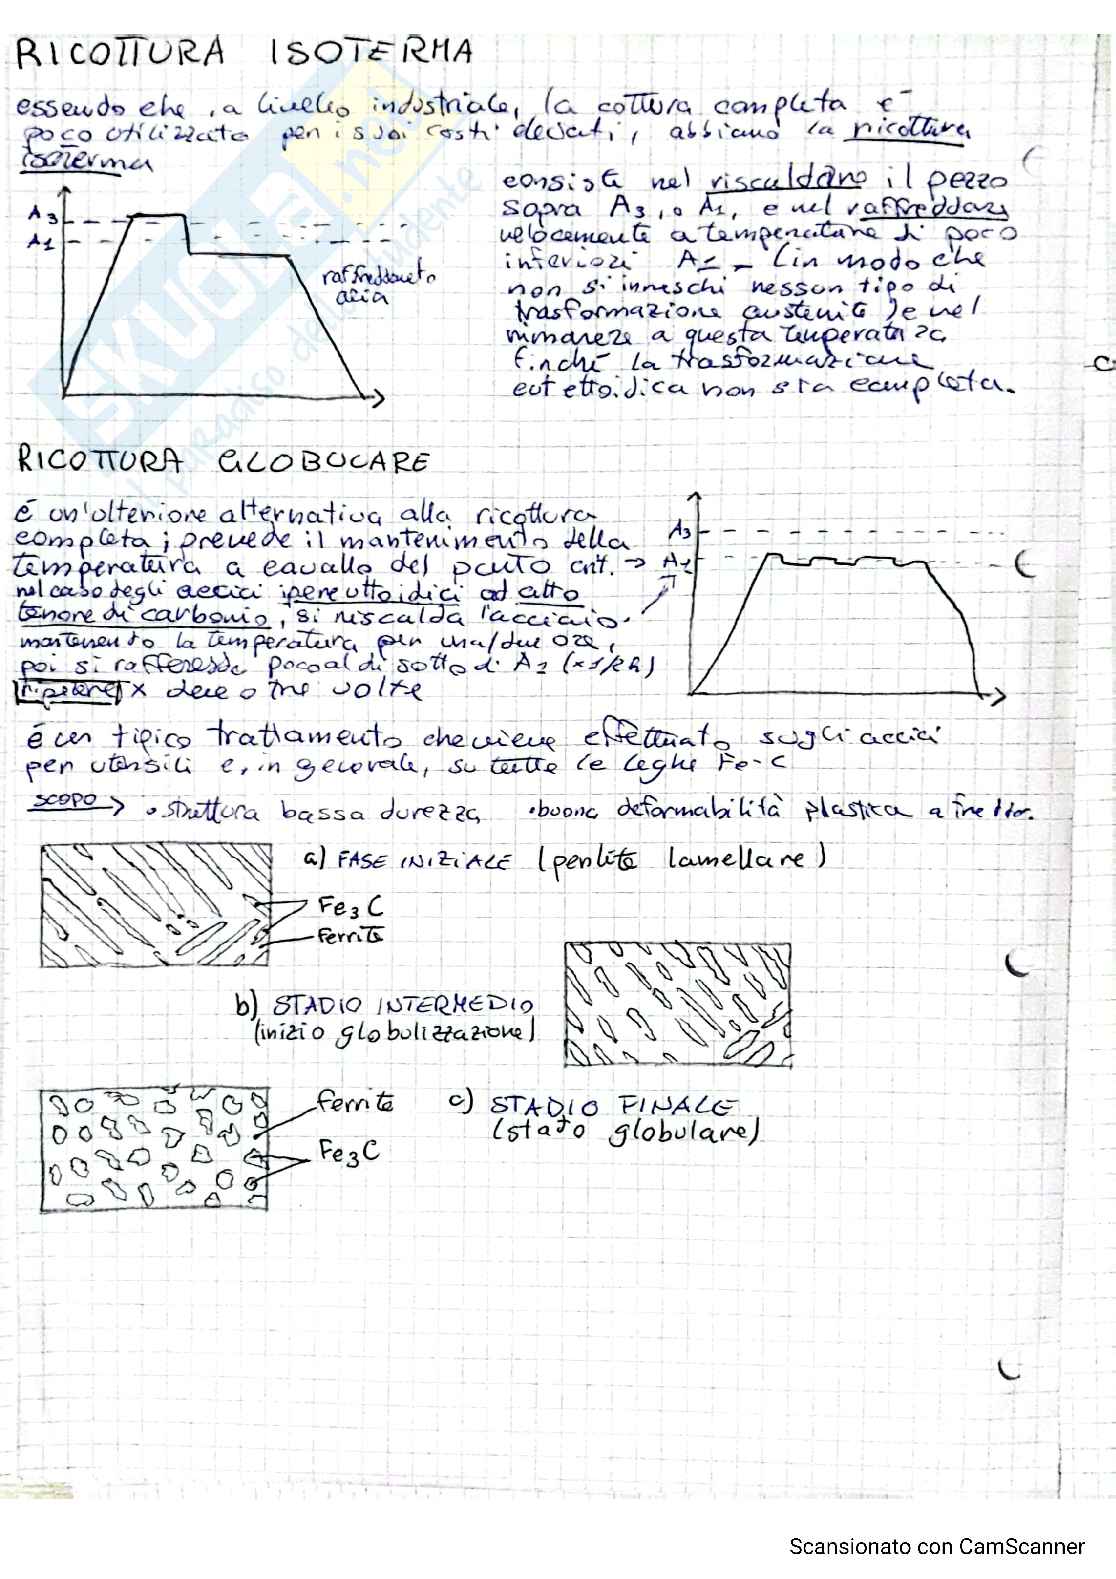 RICOTTURA ISOTERMA
essendo che, a livello industriale, la cottura completa è
poco utilizzata per i suoi costi elevati, abbiamo la ricottura
isoterma
consiste nel riscaldare il pezzo
sopra A3, o A1, e nel raffreddare
velocemente a temperature di poco
inferiori A1 - (in modo che
non si inneschi nessun tipo di
trasformazione austenite) e nel
rimanere a questa temperatura
finché la trasformazione
eutettoidica non sia completa.
A3
A1
raffreddamento
aria
RICOTTURA GLOBULARE
è un'ulteriore alternativa alla ricottura
completa; prevede il mantenimento della
temperatura a cavallo del punto crit. →
nel caso degli acciai ipereuttoidici ad alto
tenore di carbonio, si riscalda l'acciaio
mantenendo la temperatura per una/due ore,
poi si raffredda poco al di sotto di A1 (x 1/2 h)
ripetere x due o tre volte
A3
A1
è un tipico trattamento che viene effettuato sugli acciai
per utensili e, in generale, su tutte le leghe Fe-C
SCOPO → • struttura bassa durezza • buona deformabilità plastica a freddo.
a) FASE INIZIALE (perlite lamellare)
Fe3C
Ferrite
b) STADIO INTERMEDIO
(inizio globulizzazione)
ferrite
Fe3C
c) STADIO FINALE
(stato globulare)
SKUOLA.net
il paradiso dello studente
Scansionato con CamScanner